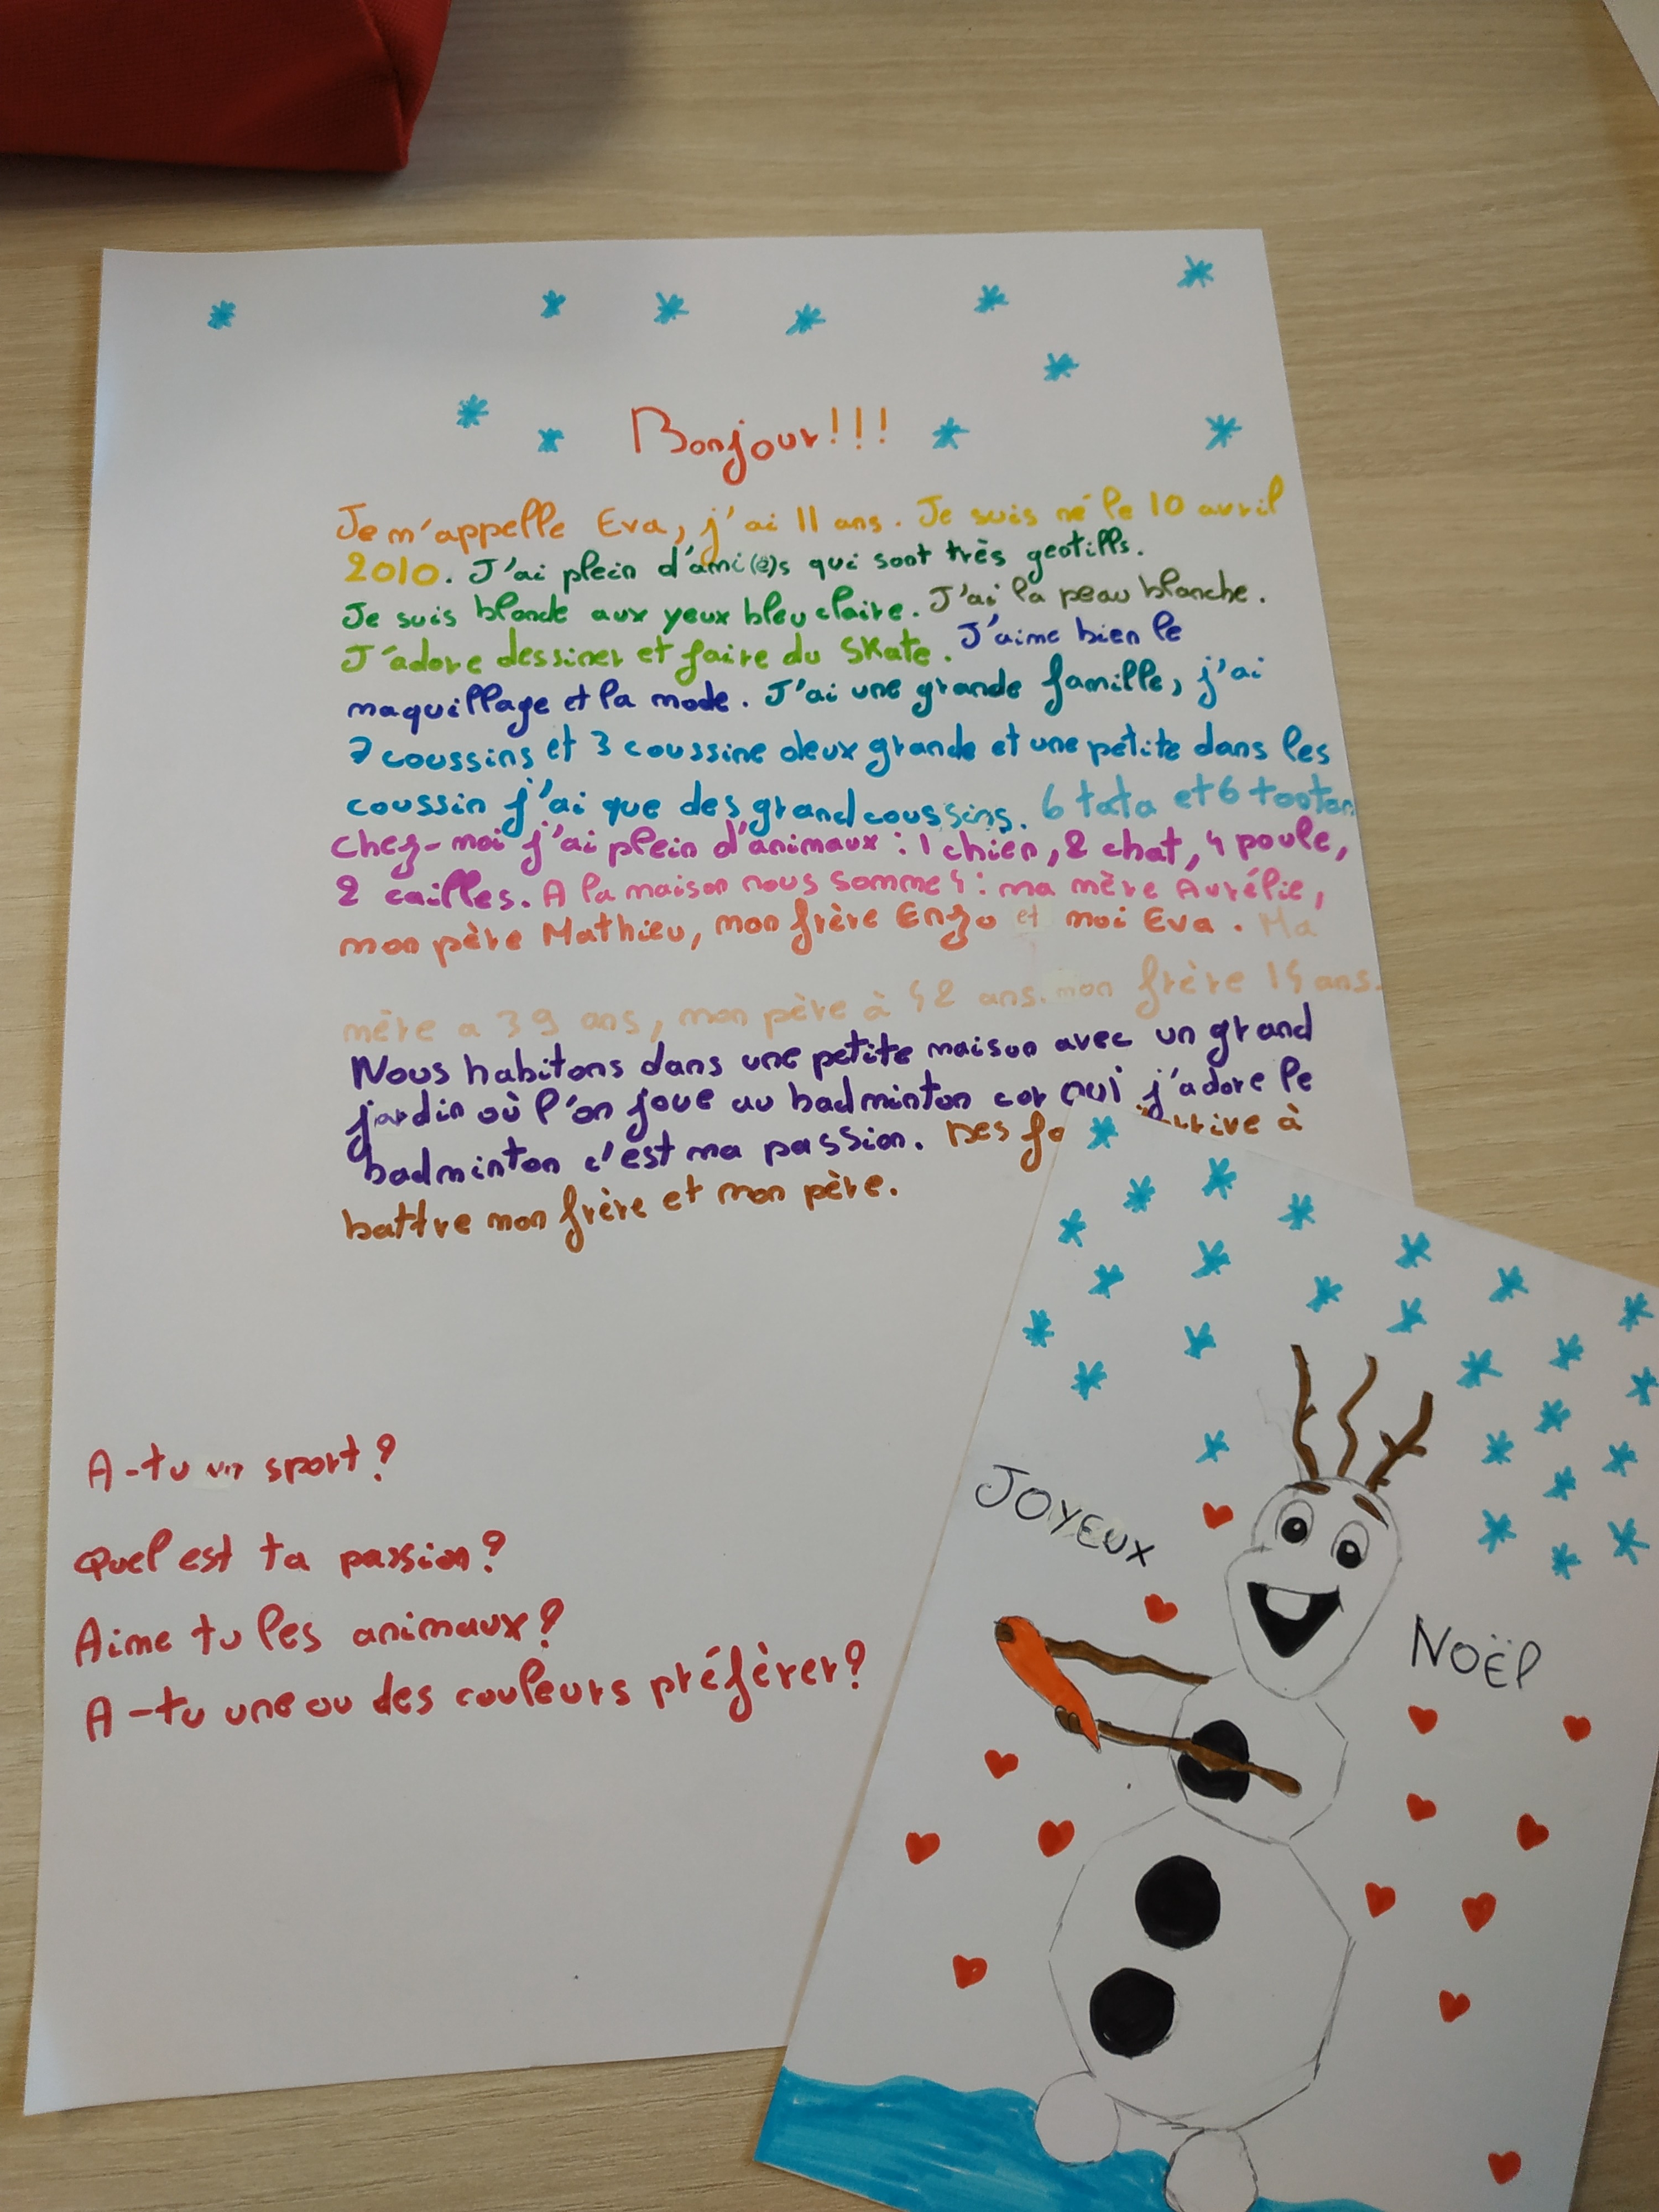 Bonjour!!!
Je m'appelle Eva, j'ai 11 ans. Je suis né le 10 avril
2010. J'ai plein d'ami(e)s qui sont très gentills.
Je suis blonde aux yeux bleu claire. J'ai la peau blanche.
J'adore dessiner et faire du Skate. J'aime bien le
maquillage et la mode. J'ai une grande famille, j'ai
7 coussins et 3 coussine deux grande et une petite dans les
coussin j'ai que des grand coussins. 6 tata et 6 tonton
chez-moi j'ai plein d'animaux : 1 chien, 2 chat, 4 poule,
2 cailles. A la maison nous somme 4 : ma mère Aurélie,
mon père Mathieu, mon frère Enzo et moi Eva. Ma
mère a 39 ans, mon père à 42 ans. mon frère 14 ans.
Nous habitons dans une petite maison avec un grand
jardin où l'on joue au badminton car oui j'adore le
badminton c'est ma passion. Des à
battre mon frère et mon père.
A-tu un sport?
Quel est ta passion?
Aime tu les animaux?
A-tu une ou des couleurs préférer?
JOYEUX
NOËl